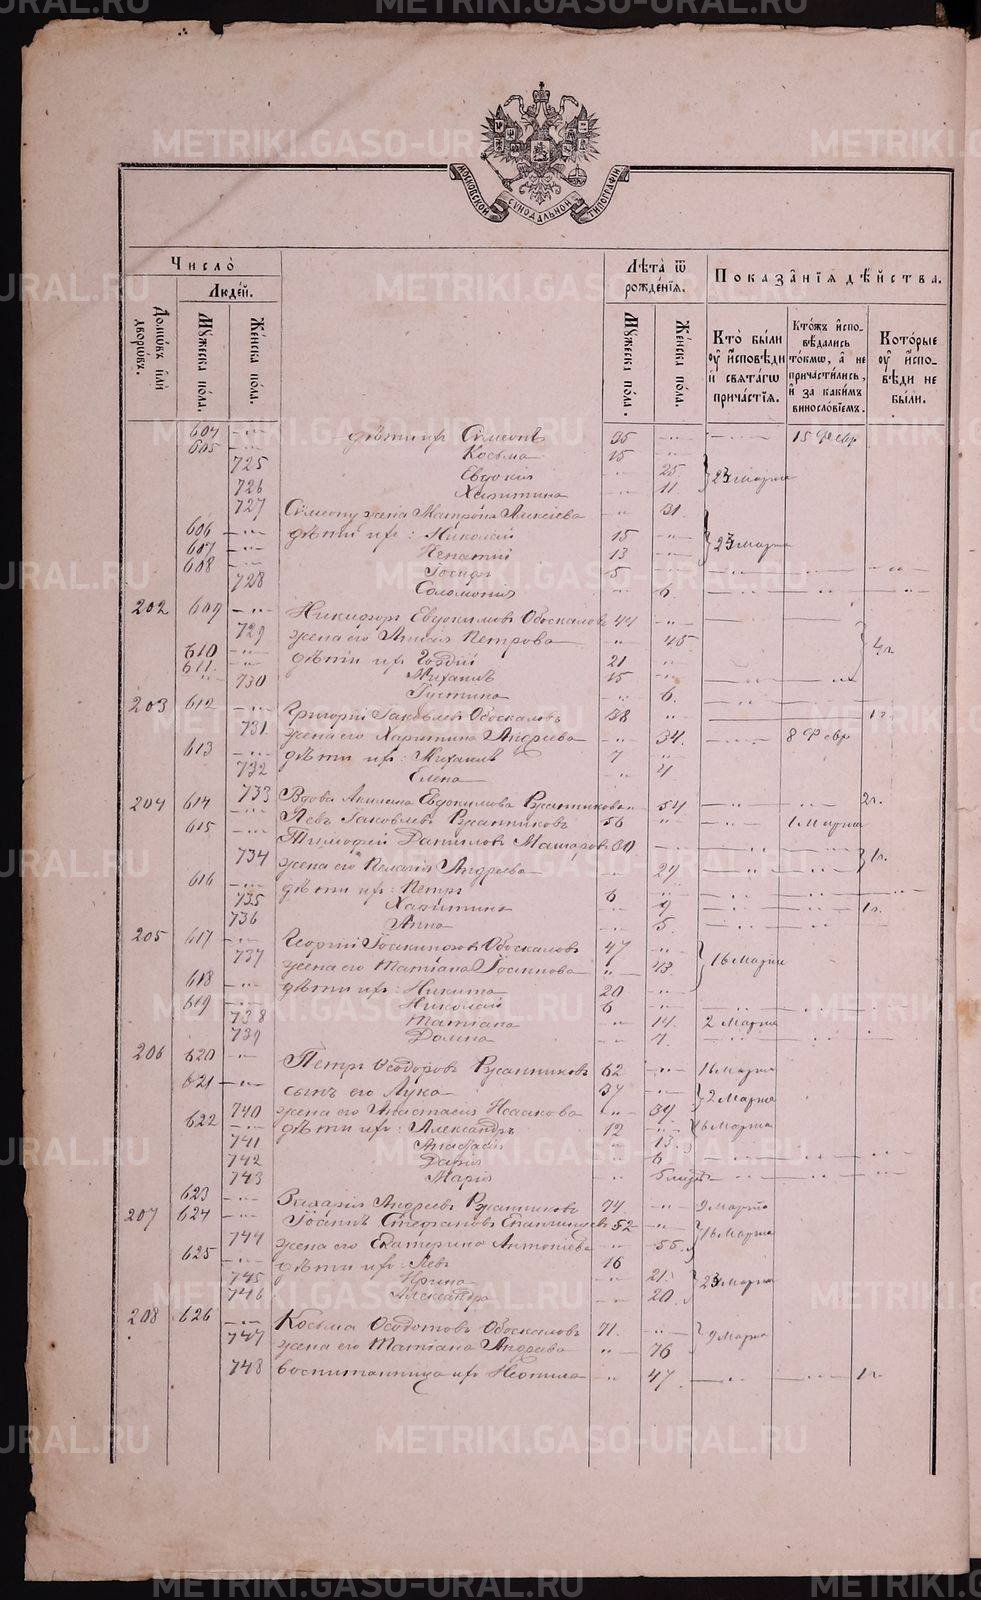 METRIKI.GASO-URAL.RU
МОСКОВСКОЙ СѴНОДАЛЬНОЙ ТИПОГРАФІИ
Число̀
Людéй.
Домѡвъ и҆лѝ дворѡвъ.
Мꙋжеска по́ла.
Же́нска по́ла.
Лѣ́та ѿ рожде́нїѧ.
Мꙋжеска по́ла.
Же́нска по́ла.
Показа̑нїѧ дѣ́йства.
Кто̀ бы́ли ᲂу҆ и҆сповѣ́ди и҆ свѧта́гѡ прича́стїѧ.
Кто́жъ и҆спо-вѣ́дались то́кмѡ, а҆ не причасти́лись, и҆ за каки́мъ виносло́вїемъ.
Кото́рые ᲂу҆ и҆спо-вѣ́ди не бы́ли.
604 дѣти ихъ Симеонъ 35 15 Февр
605 Косьма 15
725 Евдокія 25 23 Марта
726 Харитина 11
727 Симеону жена Матрона Алексіева 31
606 дѣти ихъ: Николай 15
607 Игнатій 13 23 Марта
608 Іосифъ 5
728 Соломонія 6
202 609 Никифоръ Евдокимовъ Обоскаловъ 44
729 жена его Анисія Петрова 45
610 дѣти ихъ Гордій 21
611 Михаилъ 15
730 Іустина 6
203 612 Григорій Іаковлевъ Обоскаловъ 38 1 г.
731 жена его Харитина Андреева 34 8 Февр
613 дѣти ихъ: Михаилъ 7
732 Елена 4
204 614 733 Вдова Акилина Евдокимова 54 2 г.
Левъ Іаковлевъ 56 1 Марта
615 Тимофей Даниловъ
734 жена его Пелагія Андреева 27 1 г.
616 дѣти ихъ: Петръ 6
735 Харитина 9 1 г.
736 Анна 5
205 617 Георгій Обоскаловъ 47
737 жена его Татіана 43 16 Марта
618 дѣти ихъ: Никита 20
619 Николай 6
738 Татіана 14 2 Марта
739 Домна 4
206 620 Петръ Ѳеодоровъ 62 16 Марта
621 сынъ его Лука 37 2 Марта
740 жена его Анастасія Исаакова 39
622 дѣти ихъ: Александръ 12 16 Марта
741 13
742 Дарія 6
743 Марія близн
623 Захарія Андреевъ 74 9 Марта
207 624 Іоаннъ Стефановъ 52
744 жена его Екатерина Антоніева 55 16 Марта
625 дѣти ихъ: Левъ 16
745 Ирина 21 23 Марта
746 Александра 20
208 626 Косьма Ѳеодотовъ Обоскаловъ 71
747 жена его Татіана Андреева 76 9 Марта
748 воспитанница ихъ Неонила 47 1 г